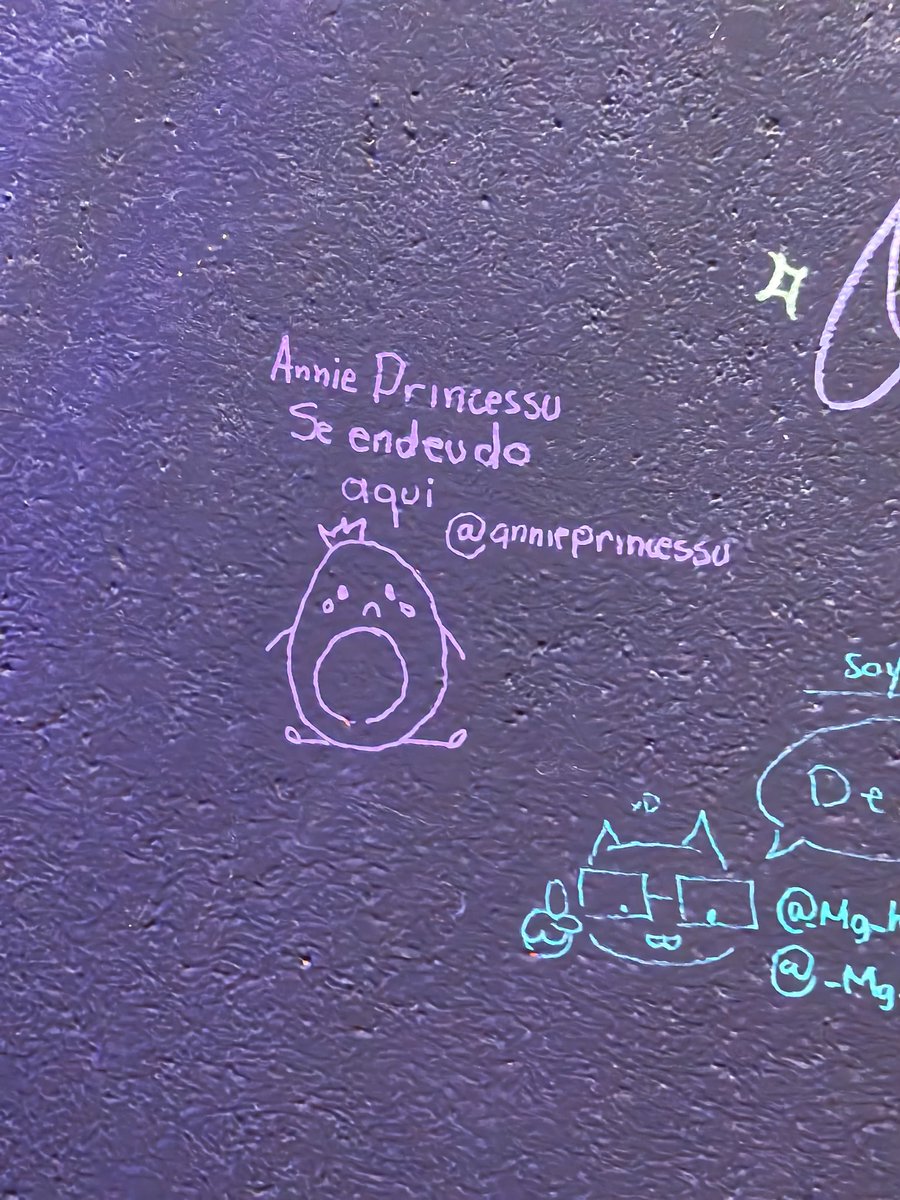 Annie Princessu
Se endeudo
aqui
@annieprincessu
Soy
xD
De
@Mg_
@_Mg_